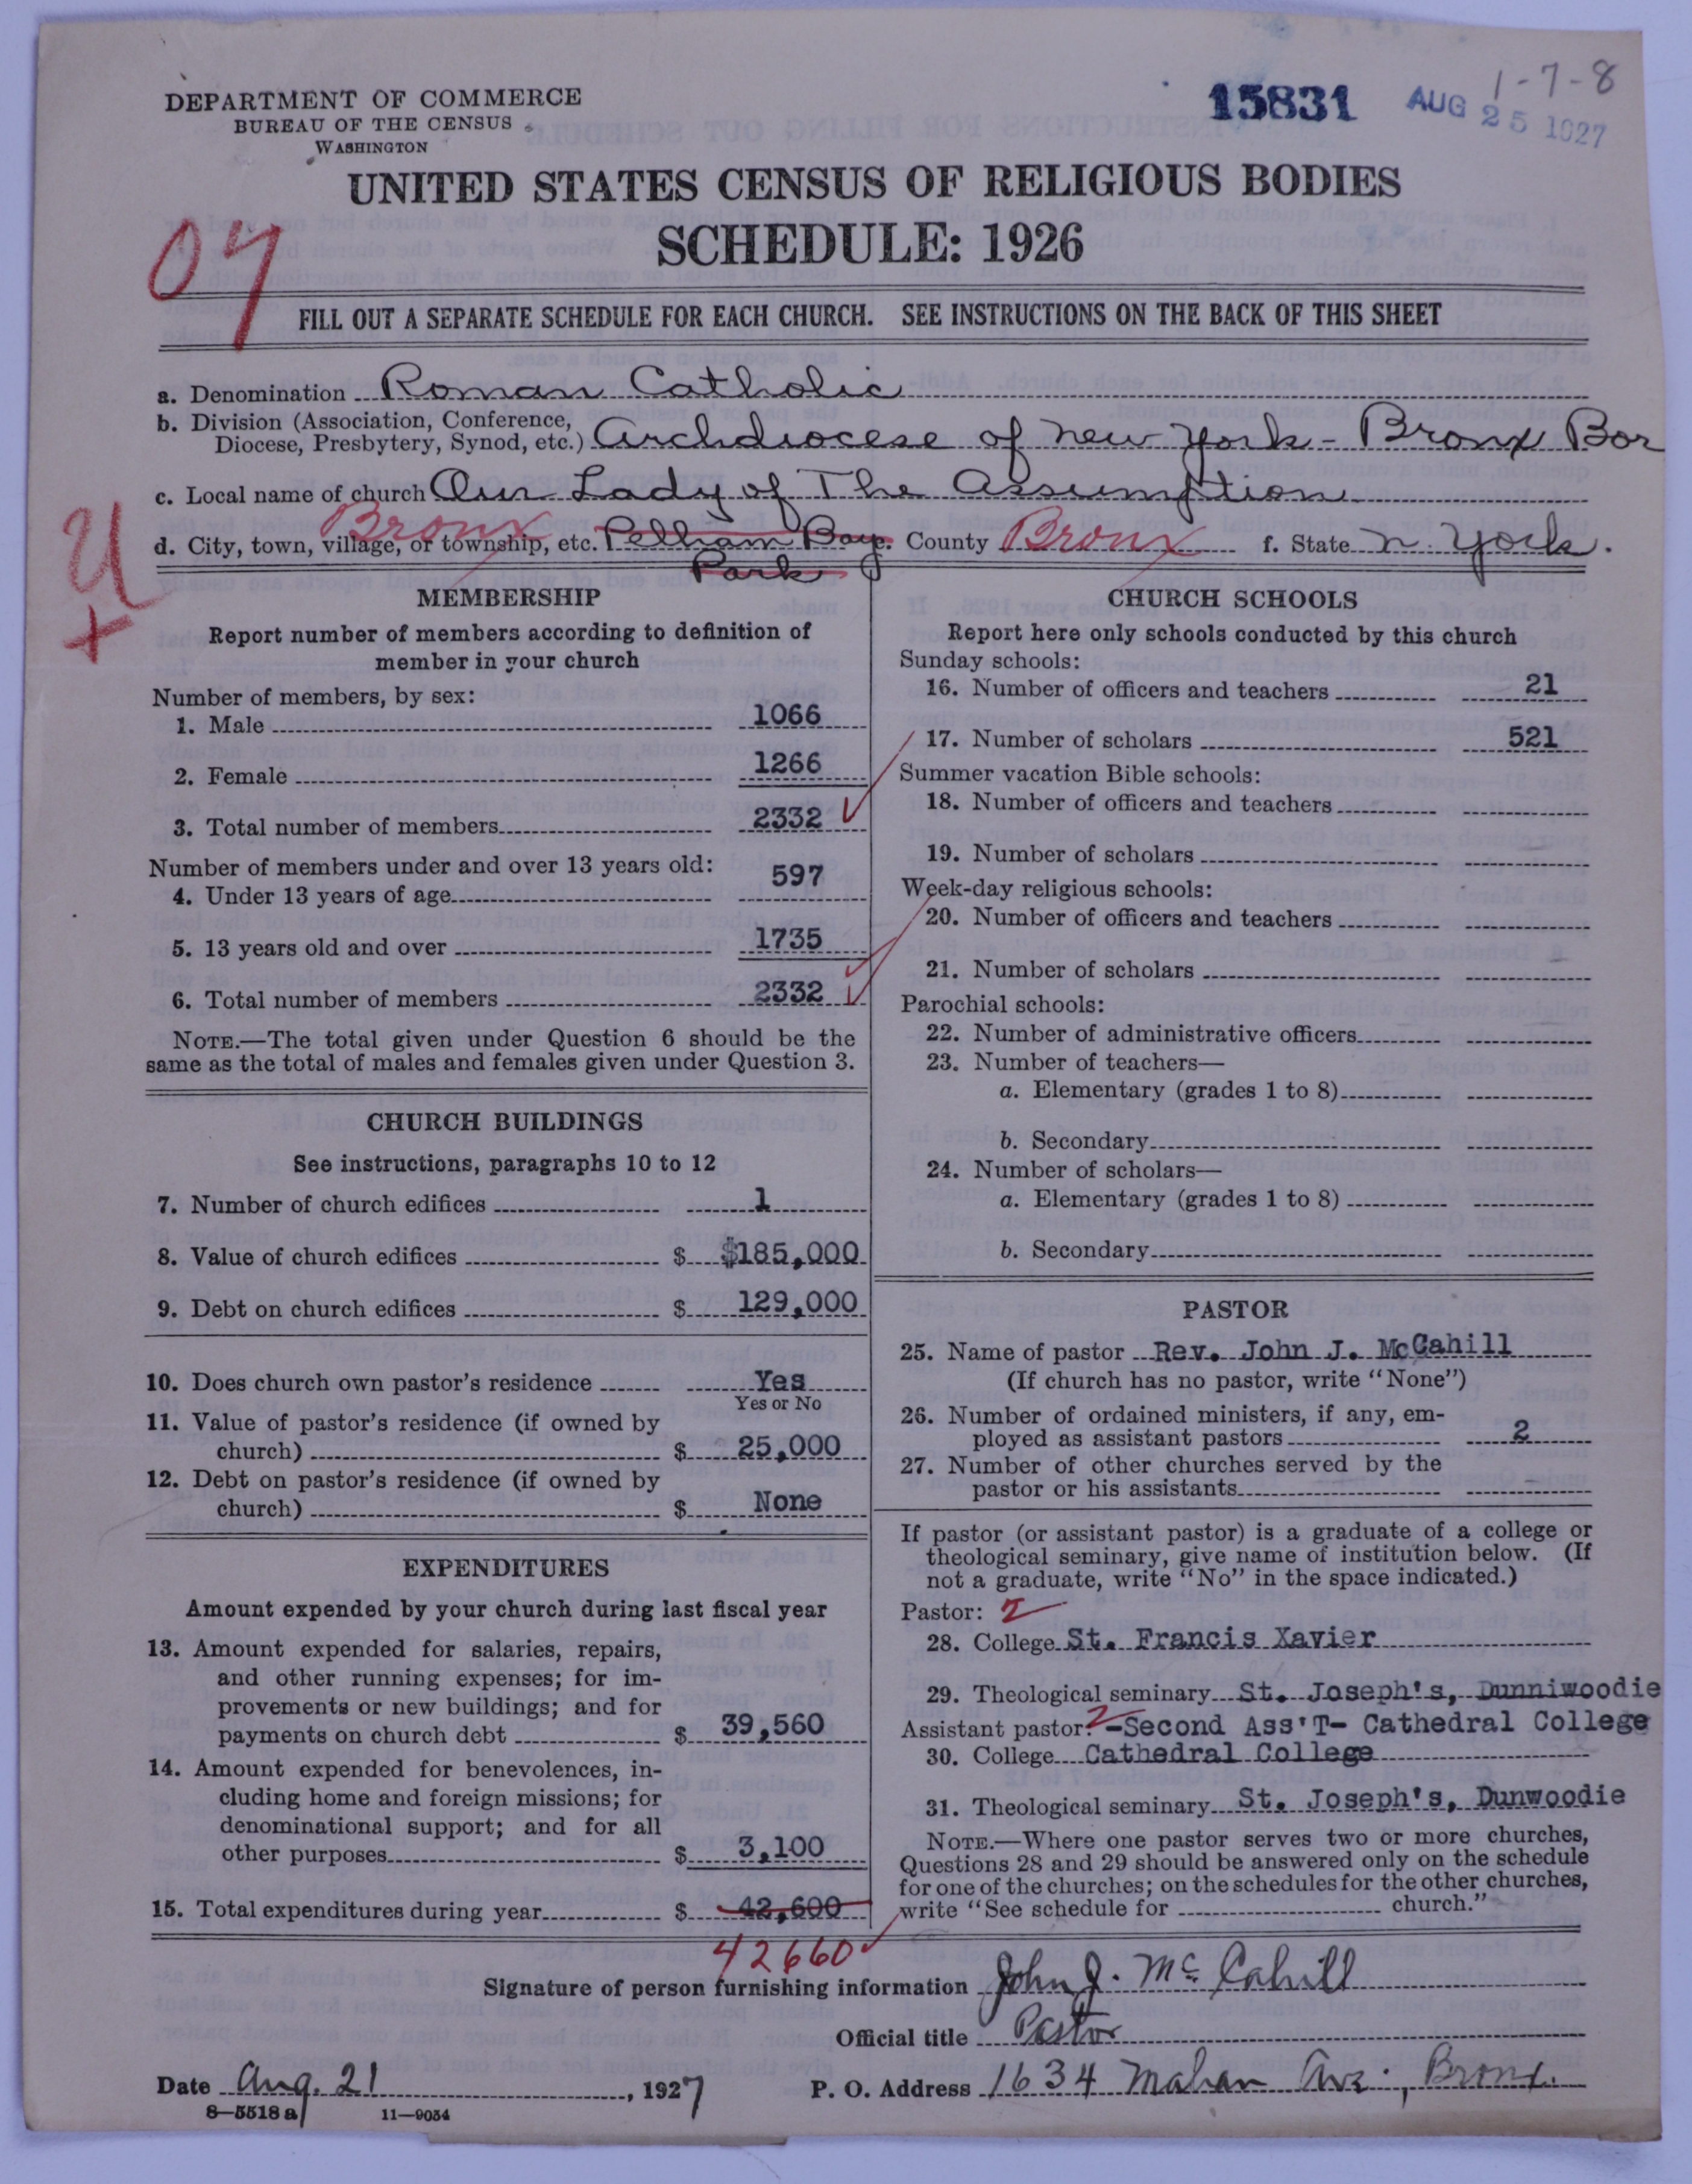 1-7-8
15831 AUG 25 1927
DEPARTMENT OF COMMERCE
BUREAU OF THE CENSUS
WASHINGTON
UNITED STATES CENSUS OF RELIGIOUS BODIES
SCHEDULE: 1926
04
FILL OUT A SEPARATE SCHEDULE FOR EACH CHURCH. SEE INSTRUCTIONS ON THE BACK OF THIS SHEET
a. Denomination Roman Catholic
b. Division (Association, Conference,
Diocese, Presbytery, Synod, etc.) Archdiocese of New York - Bronx Bor
c. Local name of church Our Lady of The Assumption
d. City, town, village, or township, etc. Pelham Bay Park Bronx e. County Bronx f. State N. York.
U
+
MEMBERSHIP
Report number of members according to definition of
member in your church
Number of members, by sex:
1. Male 1066
2. Female 1266
3. Total number of members 2332
Number of members under and over 13 years old:
4. Under 13 years of age 597
5. 13 years old and over 1735
6. Total number of members 2332
NOTE.—The total given under Question 6 should be the
same as the total of males and females given under Question 3.
CHURCH BUILDINGS
See instructions, paragraphs 10 to 12
7. Number of church edifices 1
8. Value of church edifices $ $185,000
9. Debt on church edifices $ 129,000
10. Does church own pastor's residence Yes
Yes or No
11. Value of pastor's residence (if owned by
church) $ 25,000
12. Debt on pastor's residence (if owned by
church) $ None
EXPENDITURES
Amount expended by your church during last fiscal year
13. Amount expended for salaries, repairs,
and other running expenses; for im-
provements or new buildings; and for
payments on church debt $ 39,560
14. Amount expended for benevolences, in-
cluding home and foreign missions; for
denominational support; and for all
other purposes $ 3,100
15. Total expenditures during year $ 42,600
42660
CHURCH SCHOOLS
Report here only schools conducted by this church
Sunday schools:
16. Number of officers and teachers 21
17. Number of scholars 521
Summer vacation Bible schools:
18. Number of officers and teachers
19. Number of scholars
Week-day religious schools:
20. Number of officers and teachers
21. Number of scholars
Parochial schools:
22. Number of administrative officers
23. Number of teachers—
a. Elementary (grades 1 to 8)
b. Secondary
24. Number of scholars—
a. Elementary (grades 1 to 8)
b. Secondary
PASTOR
25. Name of pastor Rev. John J. McCahill
(If church has no pastor, write "None")
26. Number of ordained ministers, if any, em-
ployed as assistant pastors 2
27. Number of other churches served by the
pastor or his assistants
If pastor (or assistant pastor) is a graduate of a college or
theological seminary, give name of institution below. (If
not a graduate, write "No" in the space indicated.)
Pastor: 2
28. College St. Francis Xavier
29. Theological seminary St. Joseph's, Dunniwoodie
Assistant pastor: 2 -Second Ass'T- Cathedral College
30. College Cathedral College
31. Theological seminary St. Joseph's, Dunwoodie
NOTE.—Where one pastor serves two or more churches,
Questions 28 and 29 should be answered only on the schedule
for one of the churches; on the schedules for the other churches,
write "See schedule for church."
Signature of person furnishing information John J. McCahill
Official title Pastor
Date Aug. 21, 1927 P. O. Address 1634 Mahan Ave., Bronx.
8—5518 a 11—9034